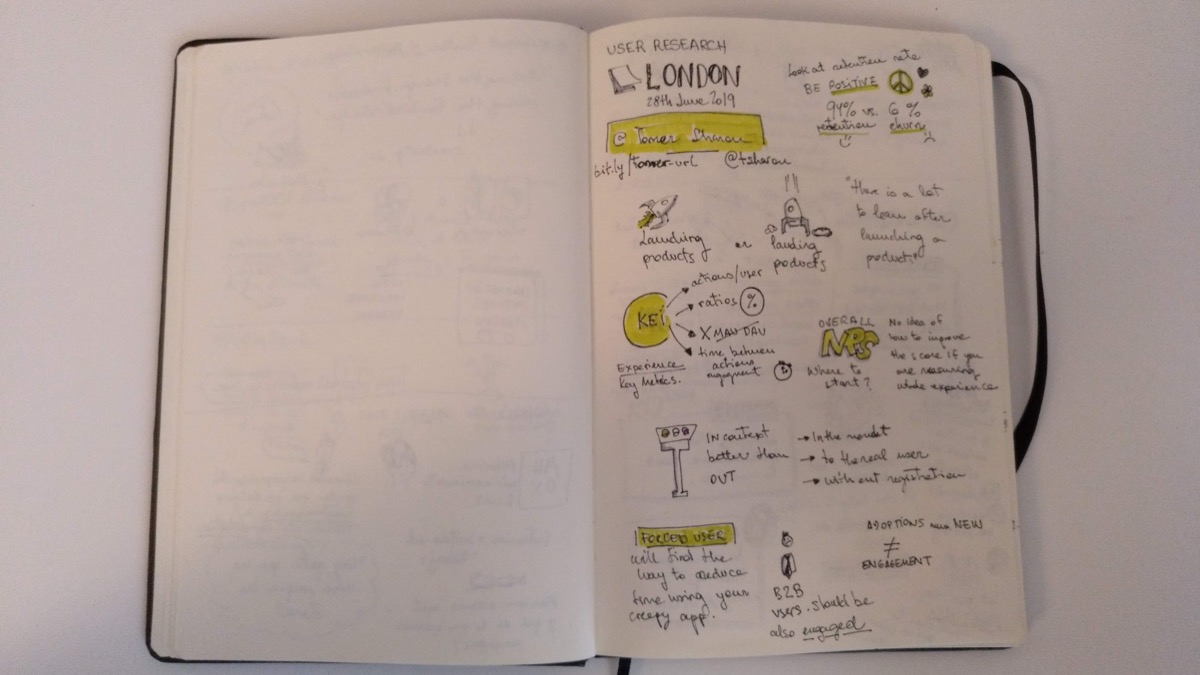 USER RESEARCH
LONDON
28th June 2019
@ Tomer Sharon
bit.ly/tomer-url @tsharon
Look at retention rate
BE POSITIVE
94% vs. 6%
retention churn
Launching
products
or
landing
products
"There is a lot
to learn after
launching a
product"
KEI
actions/user
ratios %
X MAU DAU
time between
actions
engagement
Experience
Key Metrics.
OVERALL
NPS
Where to
start?
No idea of
how to improve
the score if you
are measuring
whole experience
IN context
better than
OUT
→ In the
→ to the real user
→ without registration
FORCED USER
will find the
way to reduce
time using your
creepy app.
B2B
users. should be
also engaged
ADOPTIONS NEW
≠
ENGAGEMENT